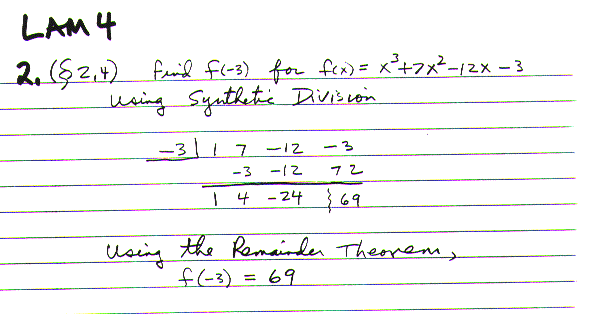 LAM 4
2. (§ 2,4) Find f(-3) for f(x) = x³+7x²-12x-3
Using Synthetic Division
-3| 1 7 -12 -3
-3 -12 72
1 4 -24 } 69
Using the Remainder Theorem,
f(-3) = 69